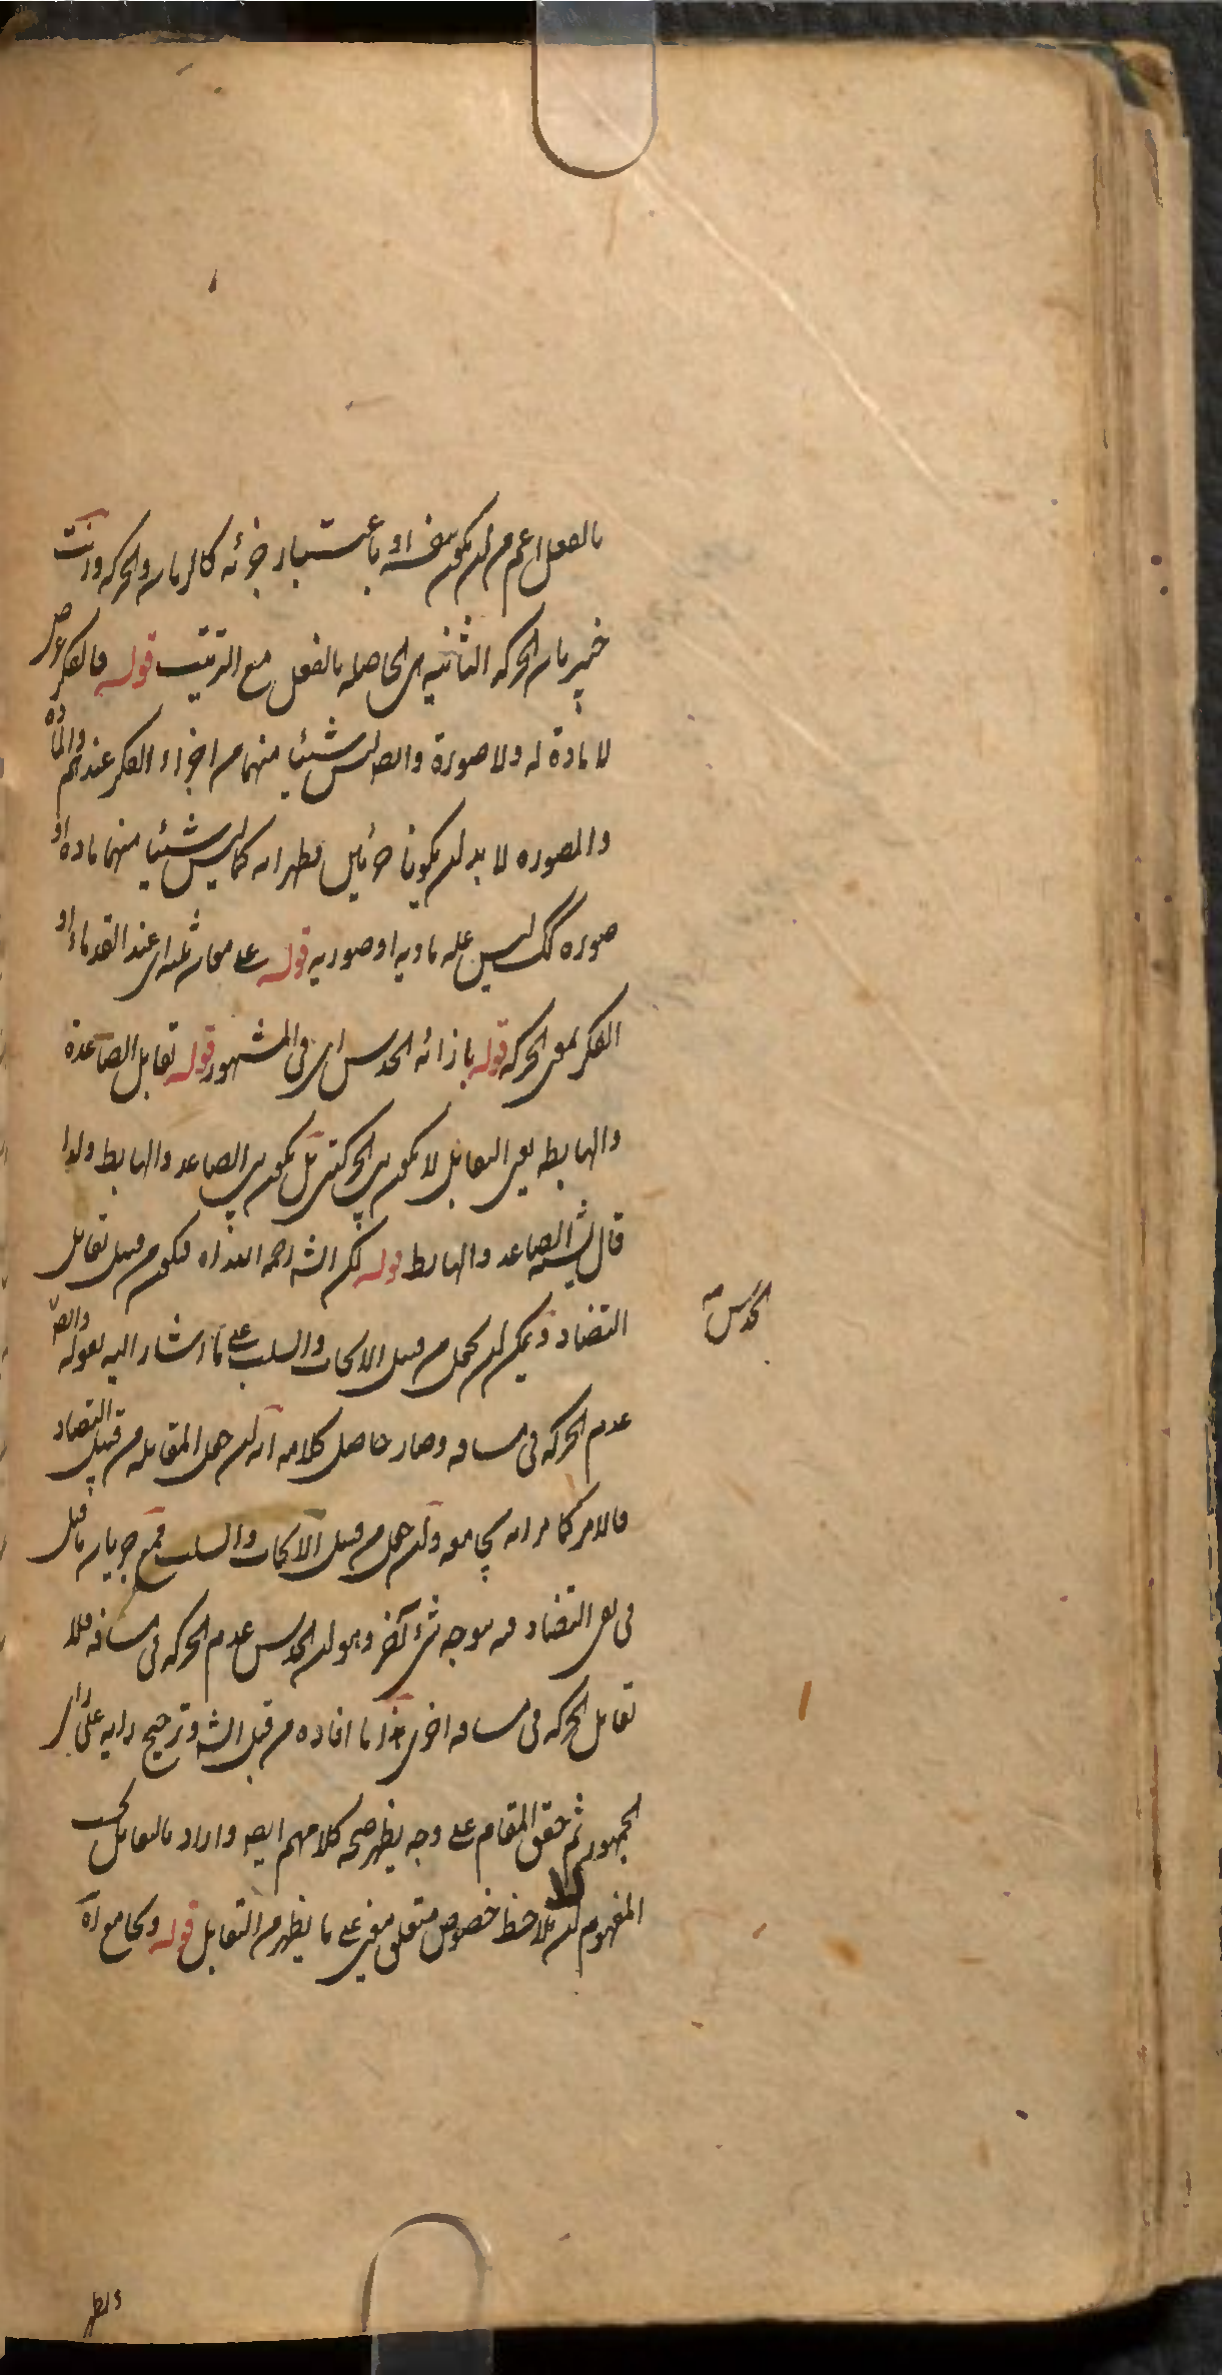 بالفعل اعم من ان يكون بنفسه او باعتبار جزئه كالزمان والحركه وانت
خبير بان الحركه الثانيه هى الحاصله بالفعل مع الترتيب قوله فالفكر عرض
لا مادة له ولا صورة وايضا ليس شيئا منهما من اجزاء الفكر عندهم والماده
والصوره لا بد ان يكونا جزئين فظهر انه كما ليس شيئا منهما ماده او
صوره كك ليس عله ماديه او صوريه قوله على معان ثلثه اى عند القدماء او
الفكر بمعنى الحركه قوله بازائه الحدس اى فى المشهور قوله تقابل الصاعدة
والهابطه يعنى التقابل لا يكون بين الحركتين بل يكون بين الصاعد والهابط ولذا
قال الصاعد والهابط قوله لكن الشه رحمه الله اه فيكون من قبيل تقابل
التضاد ويمكن ان يحمل من قبيل الايجاب والسلب على ما اشار اليه بقوله والصه
عدم الحركه فى مسافه وصار حاصل كلامه انه ان حمل المقابله من قبيل التضاد
فالامر كما مر انه يجامعه وان حمل من قبيل الايجاب والسلب فمع جريان ما قيل
فى نفى التضاد فيه يتوجه شئ آخر وهو ان الحدس عدم الحركه فى مسافه فلا
تقابل الحركه فى مسافه اخرى هذا ما افاده من قبل الشه وترجيح رايه على راى
الجمهور ثم حقق المقام على وجه يظهر صحه كلامهم ايضا واراد بالتقابل بحسب
المفهوم ان لا يلاحظ خصوص متعلق معنى على ما يظهر من التقابل قوله ويجامع اه
الحدس صه
وظهر